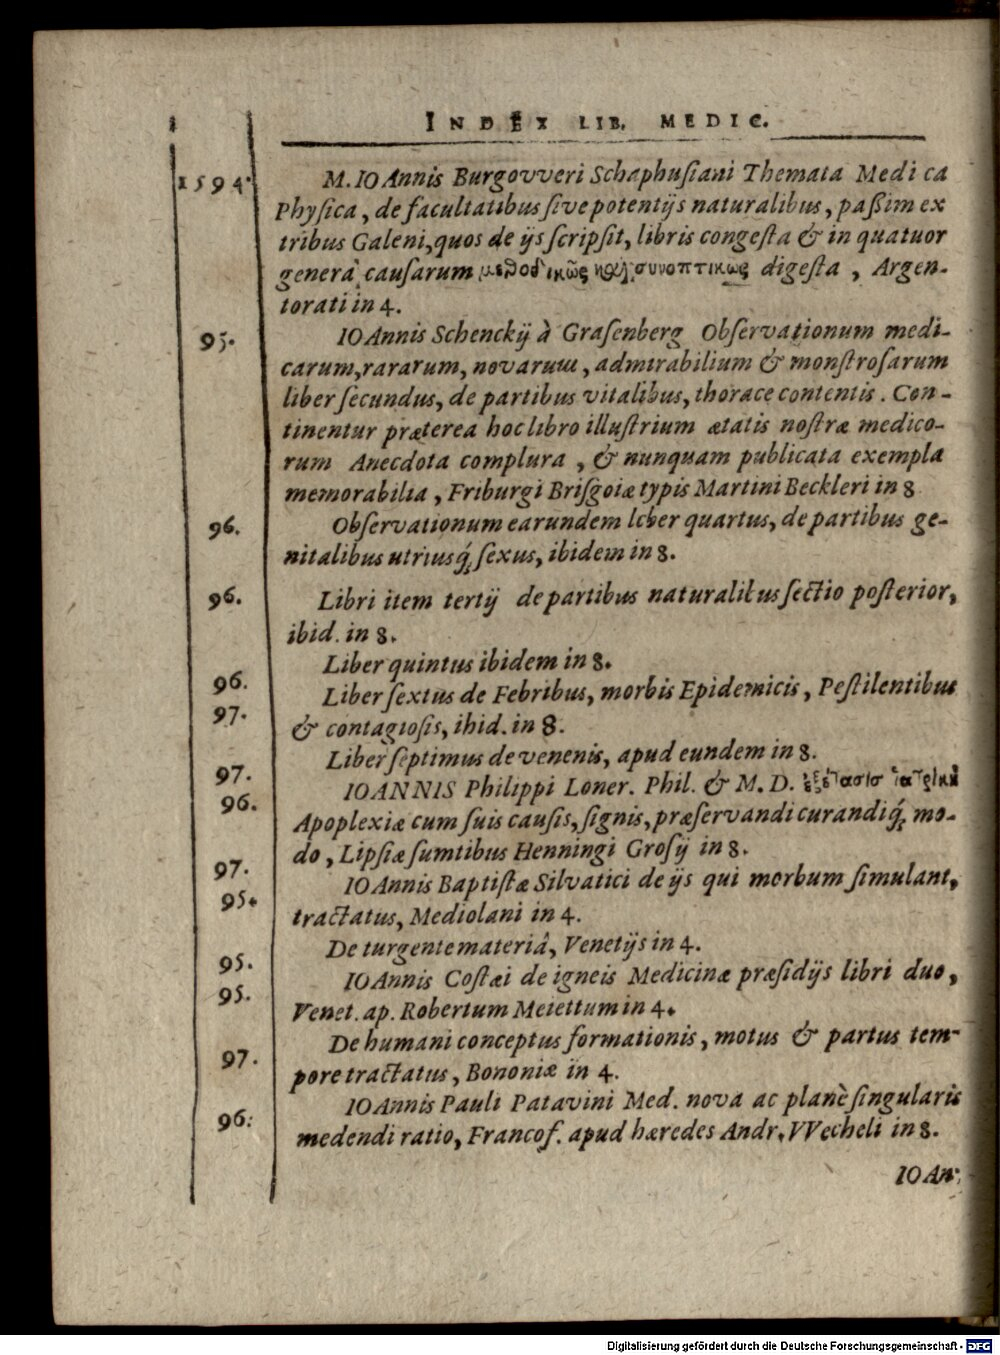 INDEX LIB. MEDIC.
1594. M. IOAnnis Burgovveri Schaphuſiani Themata Medi ca
Phyſica, de facultatibus ſive potentijs naturalibus, paßim ex
tribus Galeni, quos de ijs ſcripſit, libris congeſta & in quatuor
genera cauſarum μεθοδικῶς καὶ συνοπτικως digeſta, Argen-
torati in 4.
95. IOAnnis Schenckij à Graſenberg Obſervationum medi-
carum, rararum, novarum, admirabilium & monſtroſarum
liber ſecundus, de partibus vitalibus, thorace contentis. Con-
tinentur præterea hoc libro illuſtrium ætatis noſtræ medico-
rum Anecdota complura, & nunquam publicata exempla
memorabilia, Friburgi Briſgoiæ typis Martini Beckleri in 8
96. Obſervationum earundem lcber quartus, de partibus ge-
nitalibus utriusq́; ſexus, ibidem in 8.
96. Libri item tertij de partibus naturalibus ſectio poſterior,
ibid. in 8.
Liber quintus ibidem in 8.
96. Liber ſextus de Febribus, morbis Epidemicis, Peſtilentibus
97. & contagioſis, ibid. in 8.
Liber ſeptimus de venenis, apud eundem in 8.
97. IOANNIS Philippi Loner. Phil. & M. D. ἐξέτασισ ἰατρικὴ
96. Apoplexiæ cum ſuis cauſis, ſignis, præſervandi curandiq́; mo-
do, Lipſiæ ſumtibus Henningi Groſij in 8.
97. IOAnnis Baptiſtæ Silvatici de ijs qui morbum ſimulant,
95. tractatus, Mediolani in 4.
De turgente materiâ, Venetijs in 4.
95. IOAnnis Coſtæi de igneis Medicinæ præſidijs libri duo,
95. Venet. ap. Robertum Meiettum in 4.
De humani conceptus formationis, motus & partus tem-
97. pore tractatus, Bononiæ in 4.
IOAnnis Pauli Patavini Med. nova ac planè ſingularis
96. medendi ratio, Francof. apud hæredes Andr. VVecheli in 8.
IOAn-
Digitalisierung gefördert durch die Deutsche Forschungsgemeinschaft - DFG